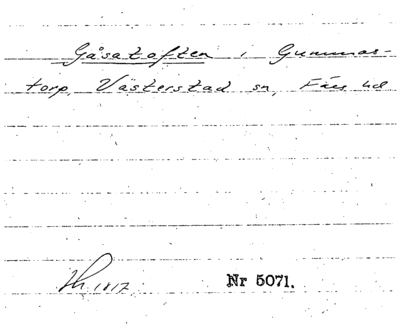 Gåsatoften i Gummas-
torp, Västerstad sn, Färs hd
Nr 5071.